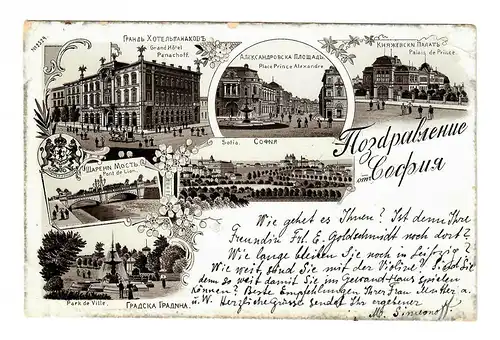 ГРАНДЪ ХОТЕЛЪ ПАНАХОВЪ
Grand Hôtel
Panachoff.
АЛЕКСАНДРОВСКА ПЛОЩАДЬ
Place Prince Alexandre
КНЯЖЕВСКИ ПАЛАТЪ
Palais de Prince.
Sofia. СОФИЯ
Поздравление
отъ София
ШАРЕНИ МОСТЪ.
Pont de Lion.
Park de Ville.
ГРАДСКА ГРАДИНА.
Wie geht es Ihnen? Ist denn Ihre
Freundin Frl. E. Goldschmidt noch dort?
Wie lange bleiben Sie noch in Leipzig?
Wie weit sind Sie mit der Violine? Sind Sie
denn so weit damit Sie im Gewandthaus spielen
können? Beste Empfehlungen Ihrer Frau Mutter a.
u. W. Herzliche Grüsse sendet Ihr ergebener
M. Simeonoff.